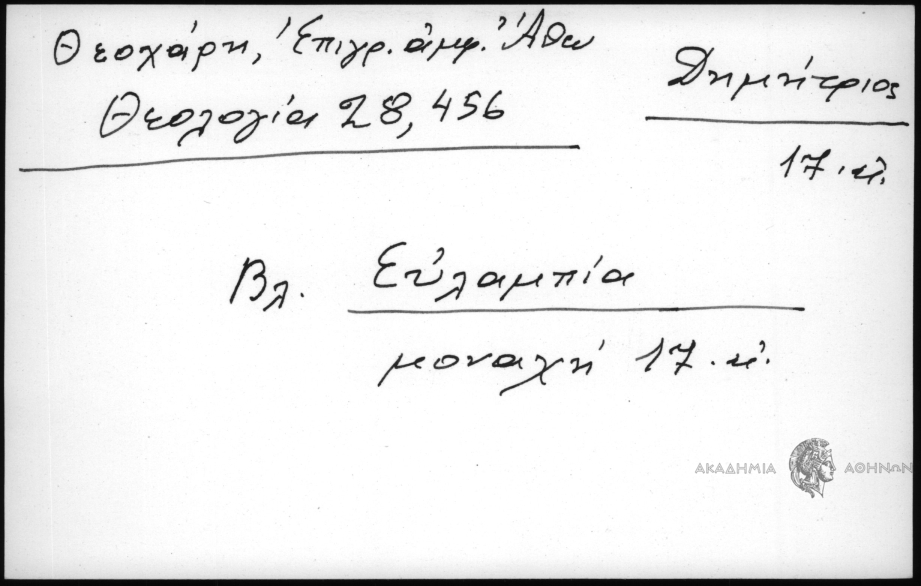 Θεοχάρη, Ἐπιγρ. ἀμφ. Ἄθω
Θεολογία 28, 456
Δημήτριος
17. αἰ.
Βλ. Εὐλαμπία
μοναχή 17. αἰ.
ΑΚΑΔΗΜΙΑ ΑΘΗΝΩΝ